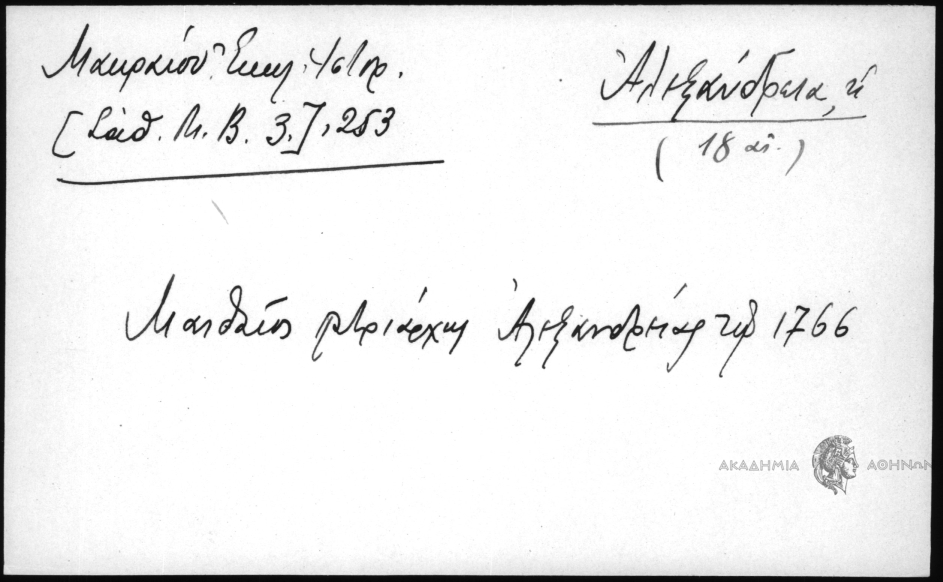 Μακραίου Ἐκκλ. Ἱστορ.
[Σάθ. Μ. Β. 3.], 253
Ἀλεξάνδρεια, ἡ
(18 αἰ.)
Ματθαῖος πατριάρχης Ἀλεξανδρείας τῷ 1766
ΑΚΑΔΗΜΙΑ ΑΘΗΝΩΝ